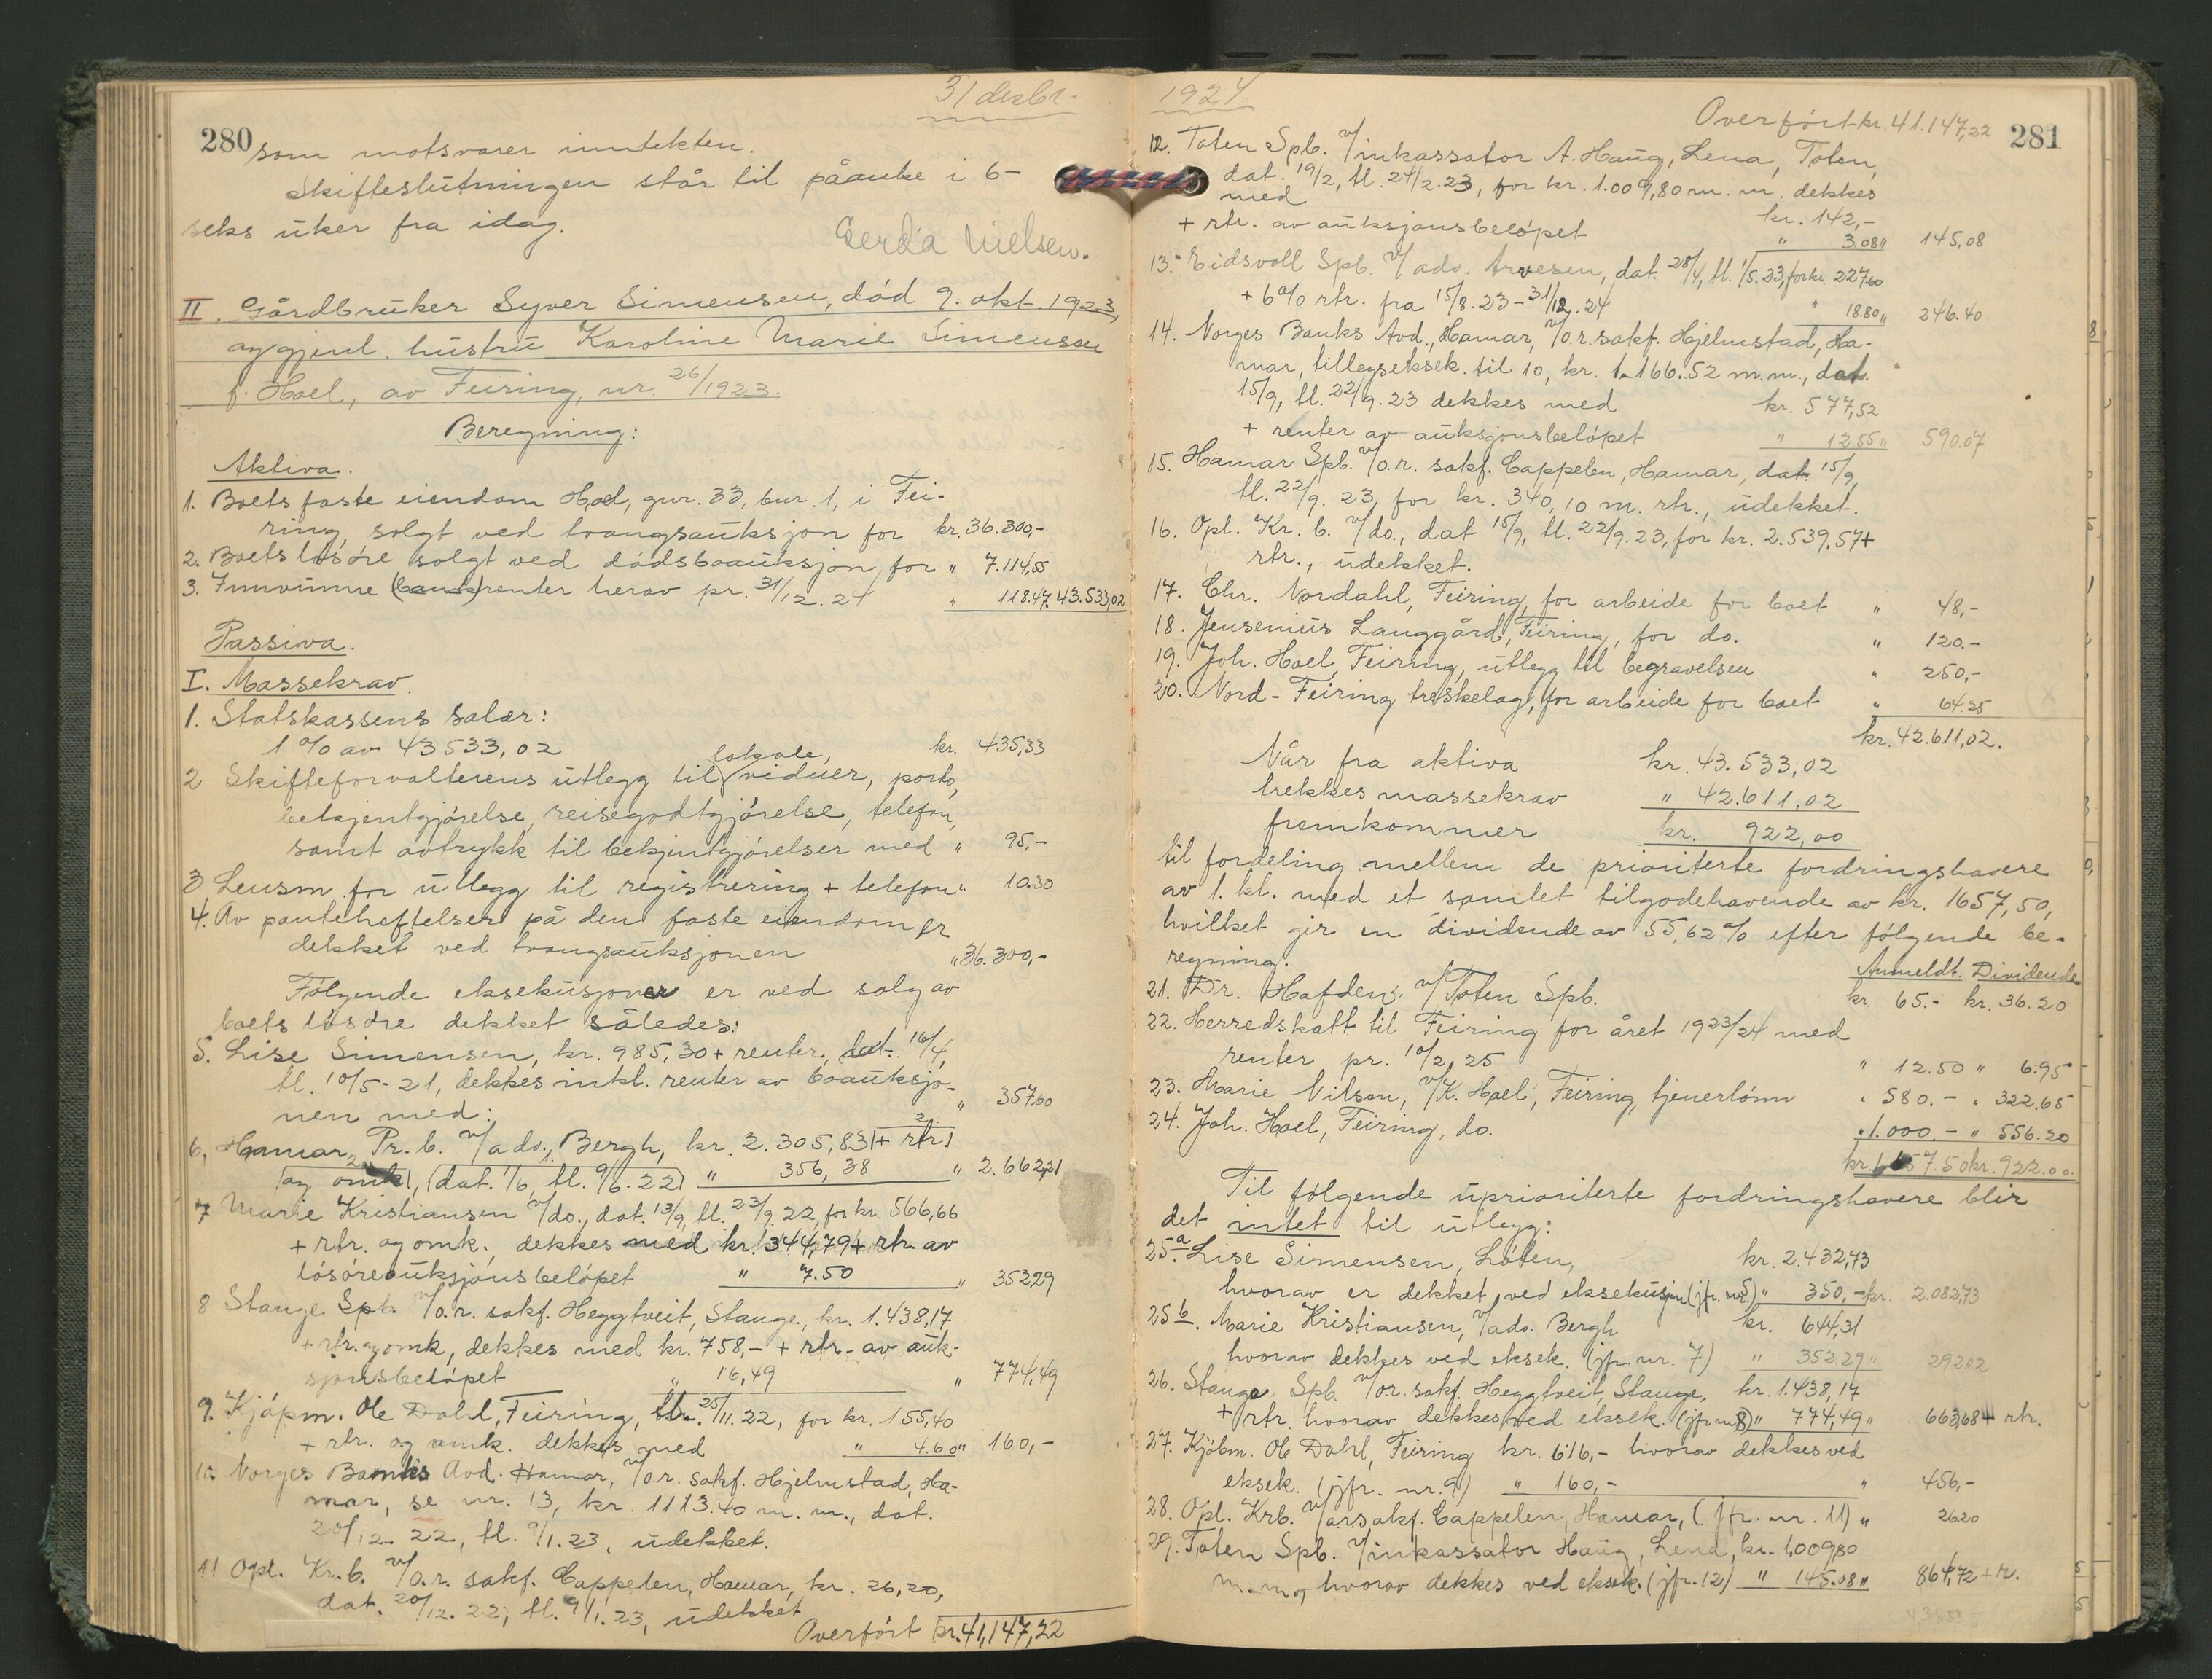 31 desbr.
280
som motsvarer inntekten.
Skifteslutningen står til påanke i 6-
seks uker fra idag.
Gerda Nielsen.
II. Gårdbruker Syver Simensen, död 9. okt. 1923,
og gjenl. hustru Karoline Marie Simensen
f. Hoel, av Feiring, nr. 26/1923.
Beregning:
Aktiva.
1. Boets faste eiendom Hoel, gnr. 33, bnr. 1, i Fei-
ring, solgt ved tvangsauksjon for kr. 36.300,-
2. Boets lösöre solgt ved dödsboauksjon for " 7.114,55
3. Innvunne (bank)renter herav pr. 31/12. 24 " 118.47. 43.533,02
Passiva.
I. Massekrav.
1. Statskassens salær:
1 % av 43533,02 kr. 435,33
lokale,
2 Skifteforvalterens utlegg til vidner, porto,
bekjentgjörelse, reisegodtgjörelse, telefon,
samt avtrykk til bekjentgjörelser med " 95,-
3 Lensm. for utlegg til registrering + telefon " 10.30
4. Av panteheftelser på den faste eiendom er
dekket ved tvangsauksjonen " 36.300,-
Fölgende eksekusjoner er ved salg av
boets lösöre dekket således:
5. Lise Simensen, kr. 985,30 + renter, dat. 16/4,
tl. 10/5-21, dekkes inkl. renter av boauksjo-
nen med: " 357.60
6. Hamar Pr. b. v/adv. Bergh, kr. 2.305,83 + rtr.
og omk, (dat. 1/6, tl. 9/6. 22) " 356,38 " 2.662,21
7 Marie Kristiansen v/do., dat. 13/9, tl. 23/9. 22, for kr. 566,66
+ rtr. og omk., dekkes med kr. 344,79 + rtr. av
lösöreauksjonsbelöpet " 7.50 " 352,29
8 Stange Spb. v/o.r. sakf. Heggtveit, Stange, kr. 1.438,17
+ rtr. og omk, dekkes med kr. 758,- + rtr. av auk-
sjonsbelöpet " 16,49 " 774,49
9. Kjöpm. Ole Dahl, Feiring, 25/11. 22, for kr. 155,40
+ rtr. og omk. dekkes med " 4.60 " 160,-
10. Norges Banks Avd. Hamar, v/o.r. sakf. Hjelmstad, Ha-
mar, se nr. 13, kr. 1113.40 m. m., dat.
20/12. 22, tl. 9/1. 23, udekket.
11 Opl. Kr. b. v/o.r. sakf. Cappelen, Hamar, kr. 26,20,
dat. 20/12. 22, tl. 9/1. 23, udekket
Overfört kr. 41,147,22
1924
Overfört kr. 41.147,22
281
12. Toten Spb. v/inkassator A. Haug, Lena, Toten,
dat. 19/2, tl. 24/2. 23, for kr. 1.009,80 m. m. dekkes
med kr. 142,-
+ rtr. av auksjonsbelöpet " 3.08 " 145,08
13. Eidsvoll Spb. v/adv. Arvesen, dat. 28/4, tl. 1/5. 23, for kr. 227.60
+ 6% rtr. fra 15/8. 23 - 31/12. 24 " 18.80 " 246.40
14. Norges Banks Avd., Hamar, v/o.r. sakf. Hjelmstad, Ha-
mar, tilleggseksek. til 10, kr. 1.166.52 m.m., dat.
15/9, tl. 22/9. 23 dekkes med kr. 577,52
+ renter av auksjonsbelöpet " 12.55 " 590.07
15. Hamar Spb. v/o.r. sakf. Cappelen, Hamar, dat. 15/9,
tl. 22/9. 23, for kr. 340,10 m. rtr., udekket.
16. Opl. Kr. b. v/do., dat 15/9, tl. 22/9. 23, for kr. 2.539,57 +
rtr., udekket.
17. Chr. Nordahl, Feiring, for arbeide for boet " 48,-
18. Jensenius Langgård, Feiring, for do. " 120.-
19. Joh. Hoel, Feiring, utlegg til begravelsen " 250,-
20. Nord-Feiring treskelag, for arbeide for boet " 64.25
kr. 42.611,02.
Når fra aktiva kr. 43.533,02
trekkes massekrav " 42.611,02
fremkommer kr. 922,00
til fordeling mellem de prioriterte fordringshavere
av 1. kl. med et samlet tilgodehavende av kr. 1657,50,
hvilket gir en dividende av 55,62 % efter fölgende be-
regning:
Anmeldt. Dividende
21. Dr. Hafden, v/Toten Spb. kr. 65.- kr. 36.20
22. Herredskatt til Feiring for året 1923/24 med
renter pr. 10/2. 25 " 12.50 " 6.95
23. Marie Nilsen, v/K. Hoel, Feiring, tjenerlönn " 580.- " 322.65
24. Joh. Hoel, Feiring, do. " 1.000.- " 556.20
kr. 1.657.50 kr. 922.00.
Til fölgende uprioriterte fordringshavere blir
det intet til utlegg:
25a. Lise Simensen, Löten, kr. 2.432,73
hvorav er dekket ved eksekusjon (jfr. nr. 5) " 350,- kr. 2.082,73
25b. Marie Kristiansen, v/adv. Bergh kr. 644,31
hvorav dekkes ved eksek. (jfr. nr. 7) " 352.29 " 292.02
26. Stange Spb. v/o.r. sakf. Heggtveit, Stange, kr. 1.438,17
+ rtr. hvorav dekkes ved eksek. (jfr nr. 8) " 774,49 " 663,68 + rtr.
27. Kjöbm. Ole Dahl, Feiring kr. 616,- hvorav dekkes ved
eksek. (jfr. nr. 9) " 160,- " 456,-
28. Opl. Krb. v/o.r. sakf. Cappelen, Hamar, (jfr. nr. 11) " 26.20
29. Toten Spb. v/inkassator Haug, Lena, kr. 1,009,80
m. m. hvorav dekkes ved eksek. (jfr. 12) " 145.08 " 864,72 + r.